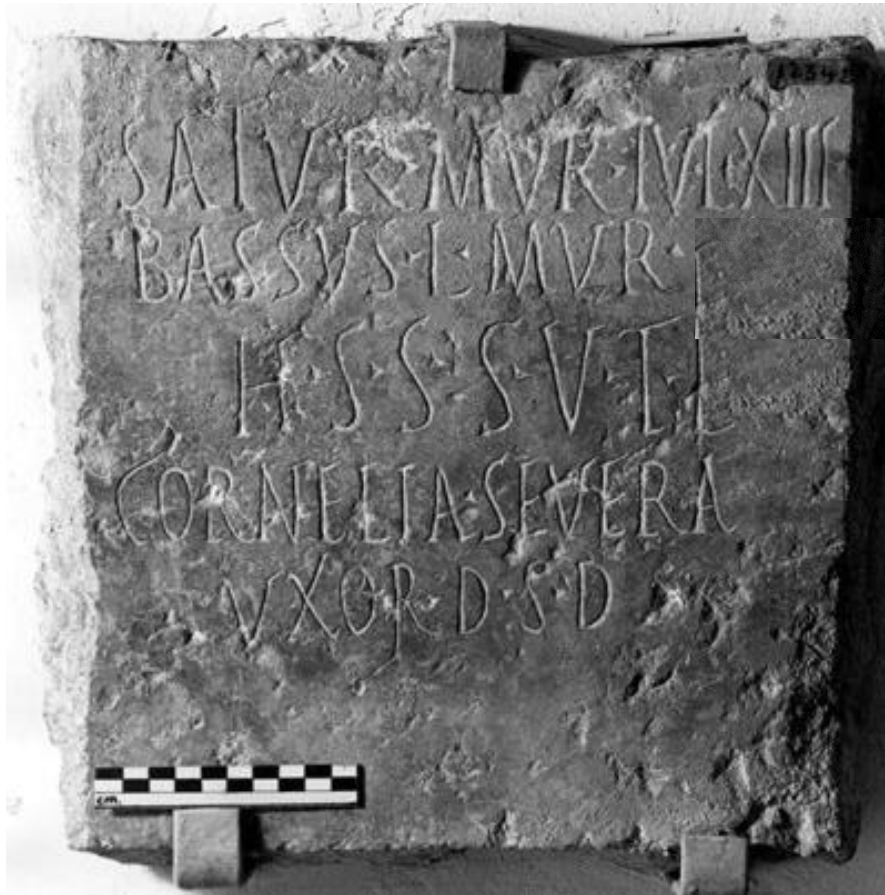 SATVR·MVR·IVL·XIII
BASSVS·L·MVR·
H·S·S·S·V·T·L
CORNELIA·SEVERA
VXOR·D·S·D
cm.